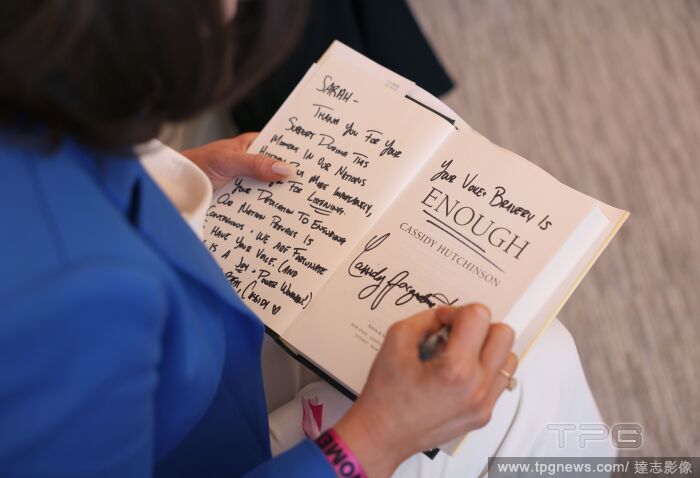 SARAH-
THANK YOU FOR YOUR
SUPPORT DURING THIS
MOMENT IN OUR NATIONS
MORE IMPORTANTLY,
FOR LISTENING.
YOUR DEDICATION TO ENSURING
OUR NATION PREVAILS IS
CONTAGIOUS. WE ARE FORTUNATE
HAVE YOUR VOICE. (AND
IS A JOY + POWER WOMAN!)
CASSIDY ♡
YOUR VOICE + BRAVERY IS
ENOUGH
CASSIDY HUTCHINSON
Cassidy
TPG
www.tpgnews.com/ 達志影像